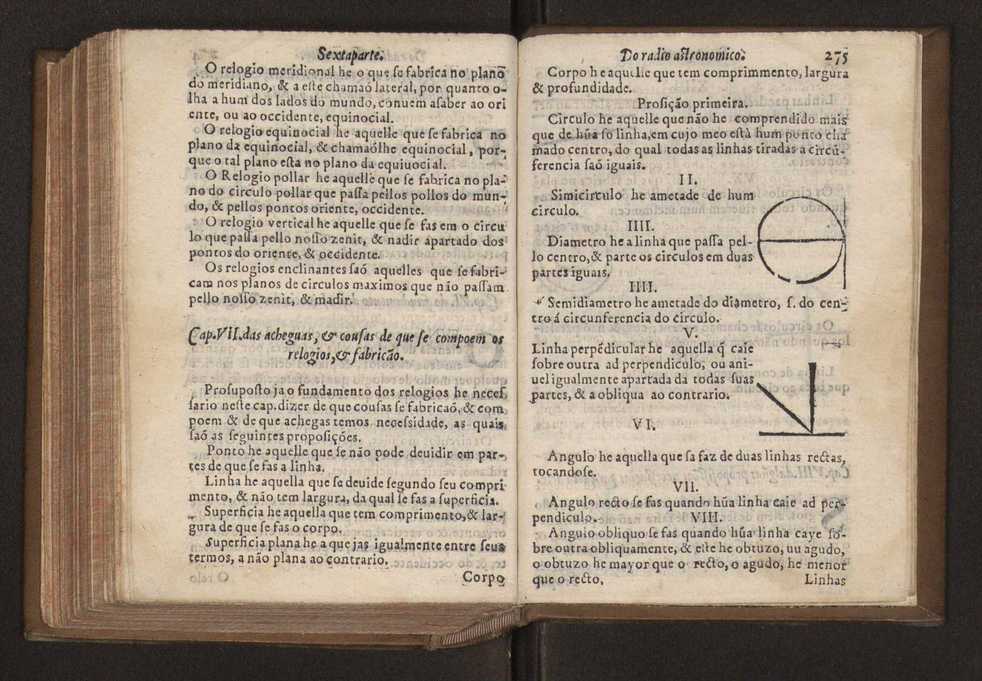 Sexta parte.
O relogio meridional he o que se fabrica no plano
do meridiano, & a este chamaó lateral, por quanto o-
lha a hum dos lados do mundo, conuem asaber ao ori
ente, ou ao occidente, equinocial.
O relogio equinocial he aquelle que se fabrica no
plano da equinocial, & chamaólhe equinocial, por-
que o tal plano esta no plano da equiuocial.
O Relogio pollar he aquelle que se fabrica no pla-
no do circulo pollar que passa pellos pollos do mun-
do, & pellos pontos oriente, occidente.
O relogio vertical he aquelle que se fas em o circu
lo que passa pello nosso zenit, & nadir apartado dos
pontos do oriente, & occidente.
Os relogios enclinantes saó aquelles que se fabri-
cam nos planos de circulos maximos que não passam
pello nosso zenit, & madir.
Cap. VII. das acheguas, & cousas de que se compoem os
relogios, & fabricão.
Prosuposto ja o fundamento dos relogios he neces
sario neste cap. dizer de que cousas se fabricaó, & com
poem & de que achegas temos necessidade, as quais
saó as seguintes proposições.
Ponto he aquelle que se não pode deuidir em par-
tes de que se fas a linha.
Linha he aquella que se deuide segundo seu compri
mento, & não tem largura, da qual se fas a superficia.
Superficia he aquella que tem comprimento, & lar-
gura de que se fos o corpo.
Superficia plana he a que jas igualmente entre seus
termos, a não plana ao contrario.
Corpo
Do radio astronomico. 275
Corpo he aquelle que tem comprimmento, largura
& profundidade.
Prosição primeira.
Circulo he aquelle que não he comprendido mais
que de húa so linha, em cujo meo està hum ponto cha
mado centro, do qual todas as linhas tiradas a circũ-
ferencia saó iguais.
II.
Simicirculo he ametade de hum
circulo.
IIII.
Diametro he a linha que passa pel-
lo centro, & parte os circulos em duas
partes iguais.
IIII.
Semidiametro he ametade do diametro, s. do cen-
tro á circunferencia do circulo.
V.
Linha perpédicular he aquella q̃ caie
sobre outra ad perpendiculo, ou ani-
uel igualmente apartada da todas suas
partes, & a obliqua ao contrario.
VI.
Angulo he aquella que sa faz de duas linhas rectas,
tocandose.
VII.
Angulo recto se fas quando húa linha caie ad per-
pendiculo. VIII.
Angulo obliquo se fas quando húa linha caye so-
bre outra obliquamente, & este he obtuzo, uu agudo,
o obtuzo he mayor que o recto, o agudo, he menor
que o recto, Linhas